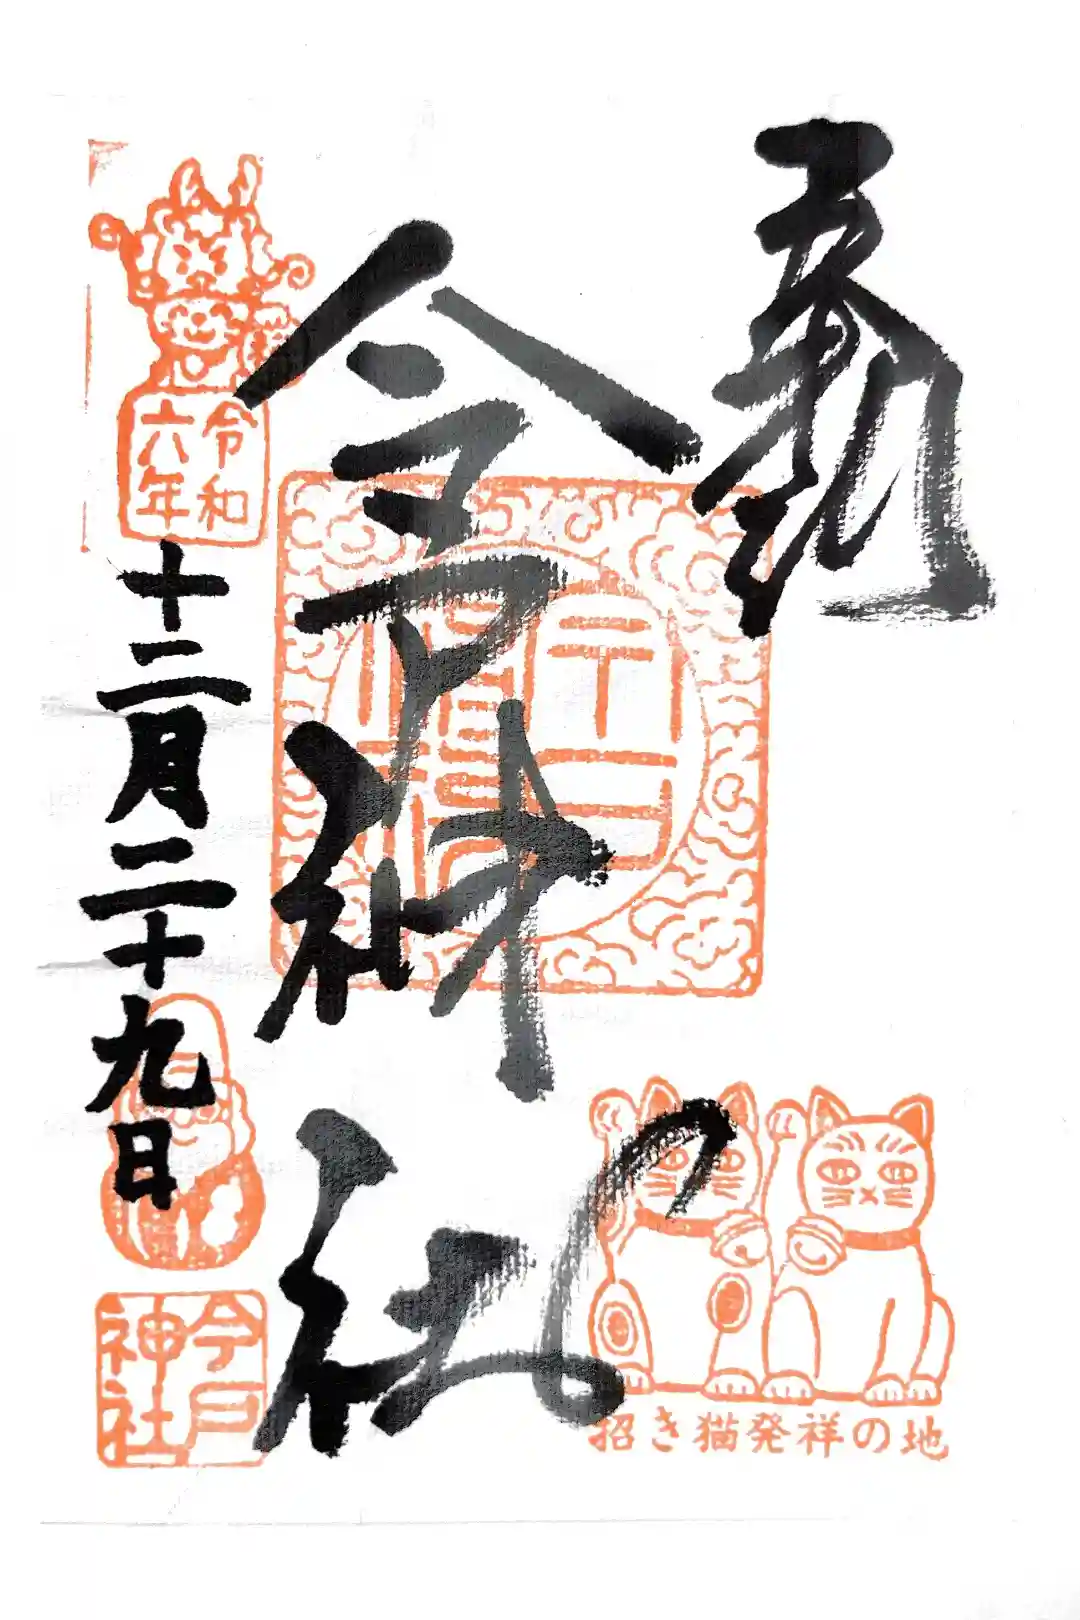 奉拝
今戸神社
招き猫発祥の地
令和
六年
十二月二十九日
今戸
神社